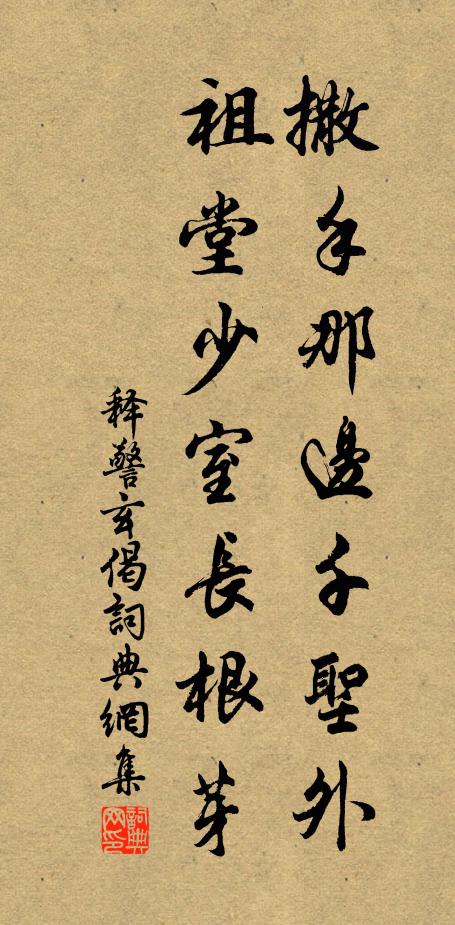 撒手那邊千聖外
祖堂少室長根芽
释警玄偈詞典網集
詞典网印